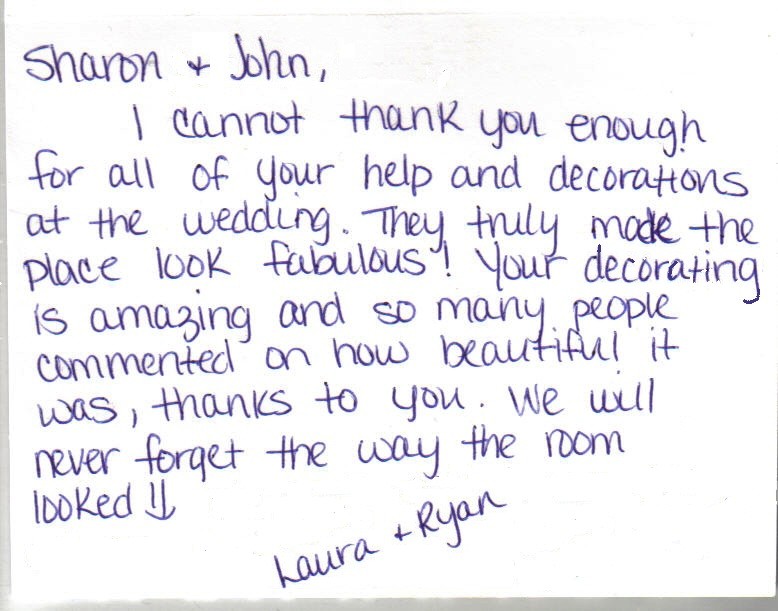 Sharon + John,
I cannot thank you enough
for all of your help and decorations
at the wedding. They truly made the
place look fabulous! Your decorating
is amazing and so many people
commented on how beautiful it
was, thanks to you. We will
never forget the way the room
looked!!
Laura + Ryan